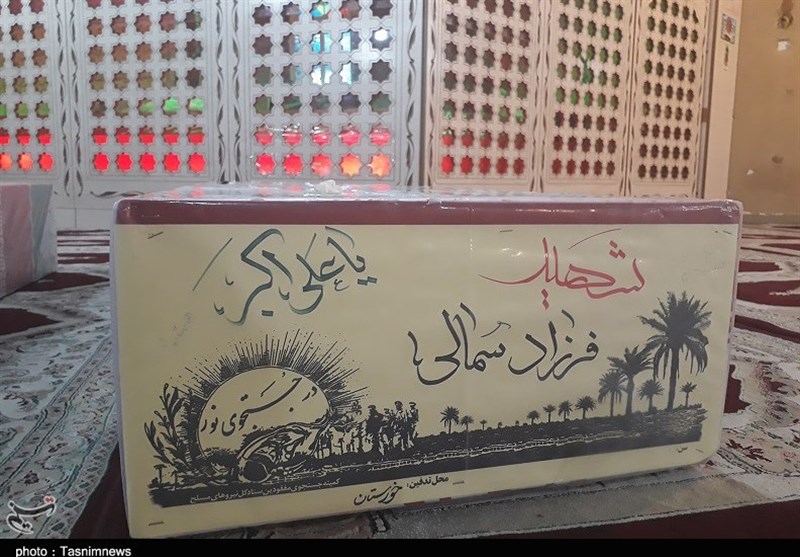 شهید
یا علی اکبر
فرزاد شمالی
در جستجوی نور
محل تدفین: خوزستان
کمیته جستجوی مفقودین ستاد کل نیروهای مسلح
تسنیم
photo : Tasnimnews